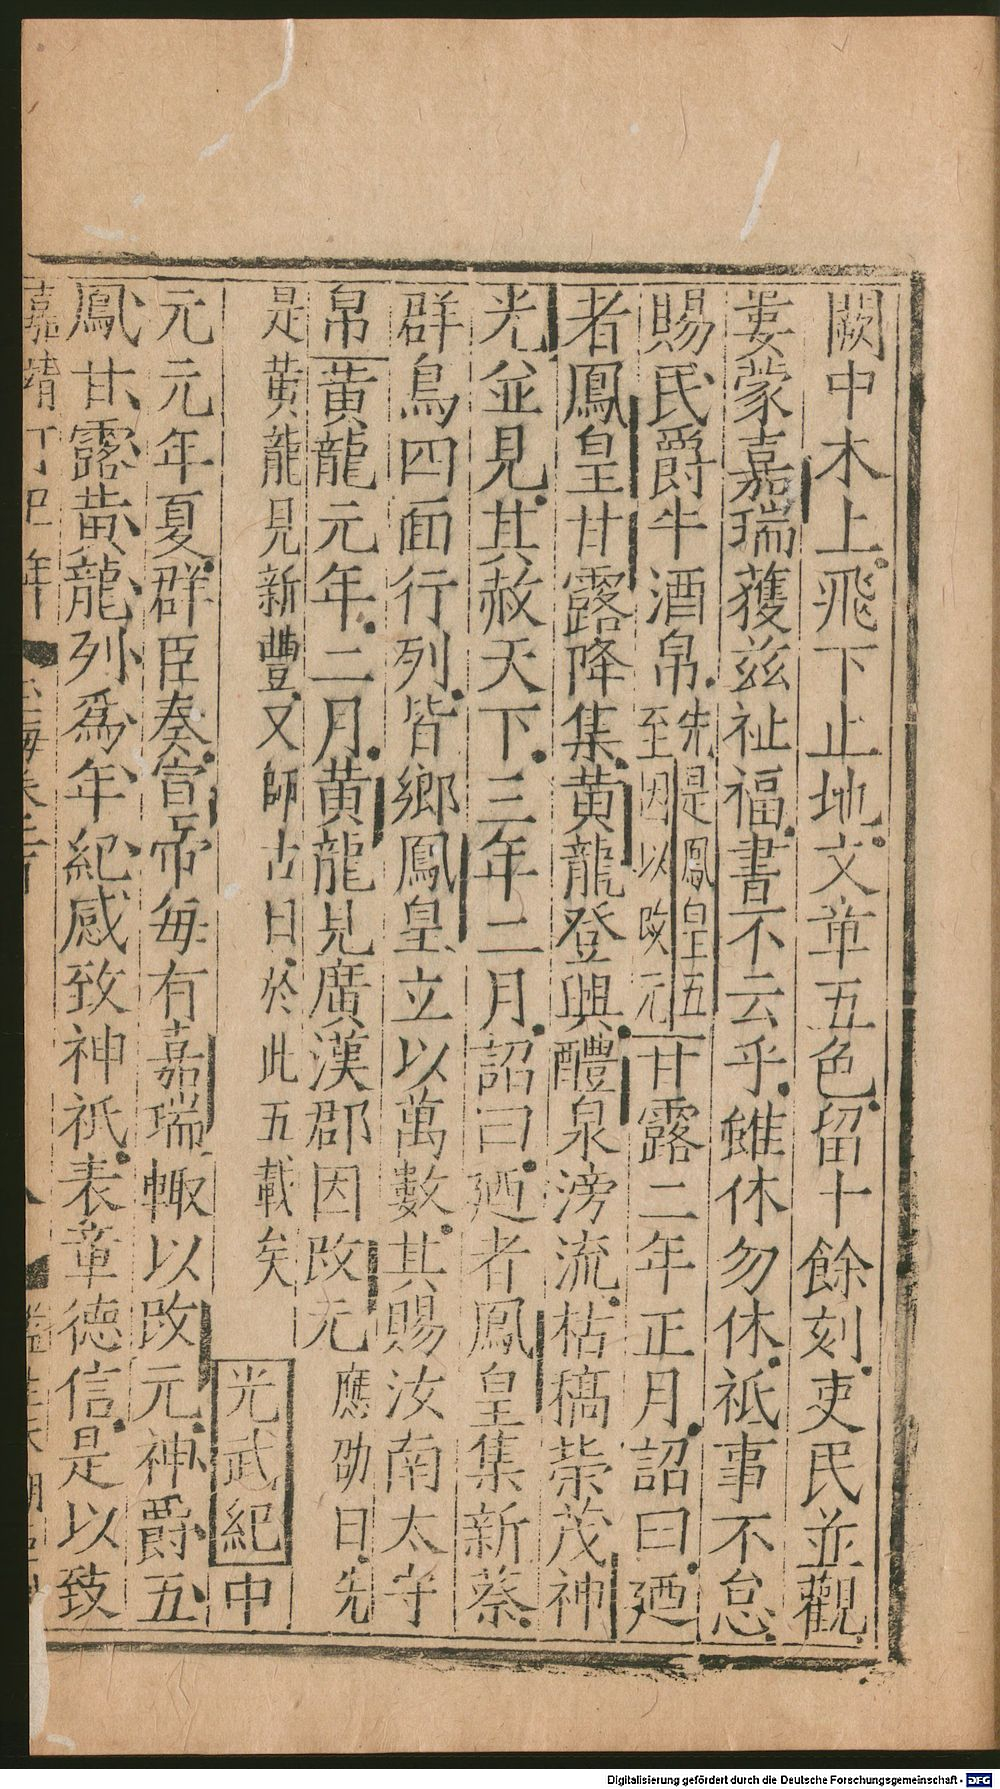 闕中木上飛下止地文章五色留十餘刻吏民並觀
婁蒙嘉瑞蒦兹祉福書不云乎雖休勿休祗事不怠
賜民爵牛酒帛先是鳳皇五至因以改元甘露二年正月詔曰廼
者鳳皇甘露降集黄龍登興醴泉滂流枯槁榮茂神
光並見其赦天下三年二月詔曰廼者鳳皇集新蔡
群鳥四面行列皆鄉鳳皇立以萬數其賜汝南太守
帛黄龍元年二月黄龍見廣漢郡因改元應劭曰先
是黄龍見新豐又師古曰於此五載矣光武紀中
元元年夏群臣奏宣帝毎有嘉瑞輙以改元神爵五
鳳甘露黄龍列爲年紀感致神祇表章德信是以致
嘉靖丁巳年
Digitalisierung gefördert durch die Deutsche Forschungsgemeinschaft - DFG